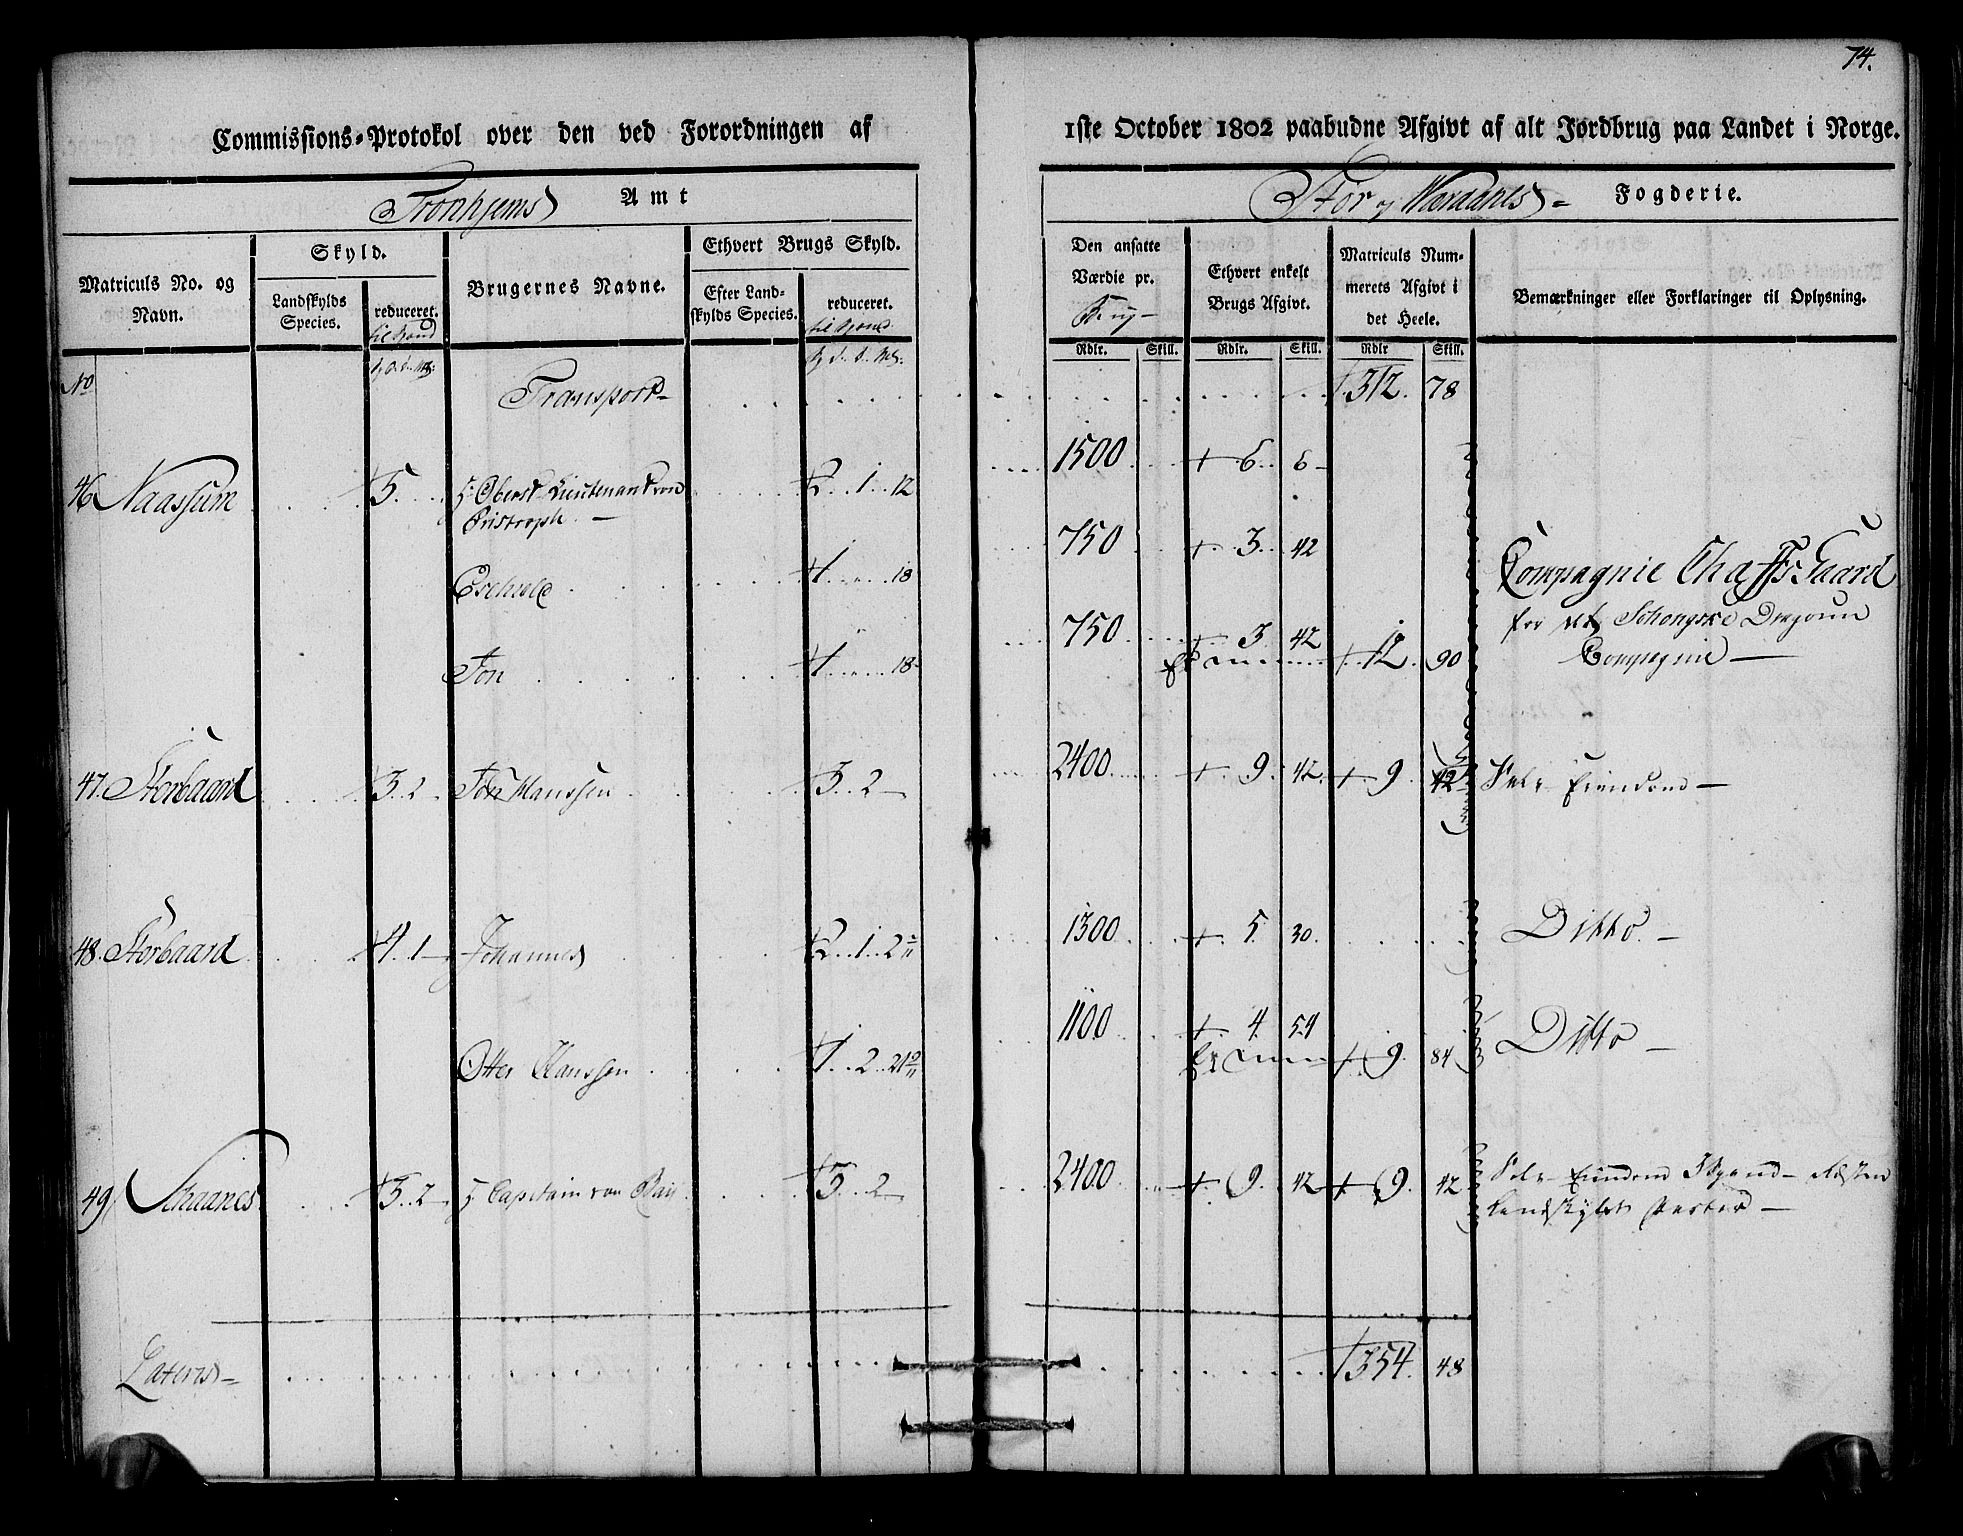 74.
Commissions-Protokol over den ved Forordningen af 1ste October 1802 paabudne Afgivt af alt Jordbrug paa Landet i Norge.
Tronhjems Amt
Stor og Værdahls Fogderie.
Matriculs No. og Navn.
Skyld.
Landskylds Species.
reduceret.
Brugernes Navne.
Ethvert Brugs Skyld.
Efter Landskylds Species.
reduceret.
Den ansatte Værdie pr. Brug
Ethvert enkelt Brugs Afgivt.
Matriculs Nummerets Afgivt i det Heele.
Bemærkninger eller Forklaringer til Oplysning.
Rdlr. Skill. Rdlr. Skill. Rdlr Skill.
No Transport 312. 78
46 Naassum 5. Oberst Lieutenant von 2. 1. 12 1500 6. 6
750 3. 42 Compagnie Chefs Gaard
1 18
for det Dragoun
Compagnie
Jon 1 18 750 3. 42 12. 90
47. Storbaard 3. 2 Jon Hanssen 3. 2 2400 9. 42. 9. 42
48. Storbaard 4. 1 Johannes 2. 1. 2 1300 5. 30. Ditto
Otter Hanssen 1. 2. 21 1100 4. 54 9. 84 Ditto
49 Schaanes 3. 2 Capitain von 3. 2 2400 9. 42 9. 42
Lateris 354. 48